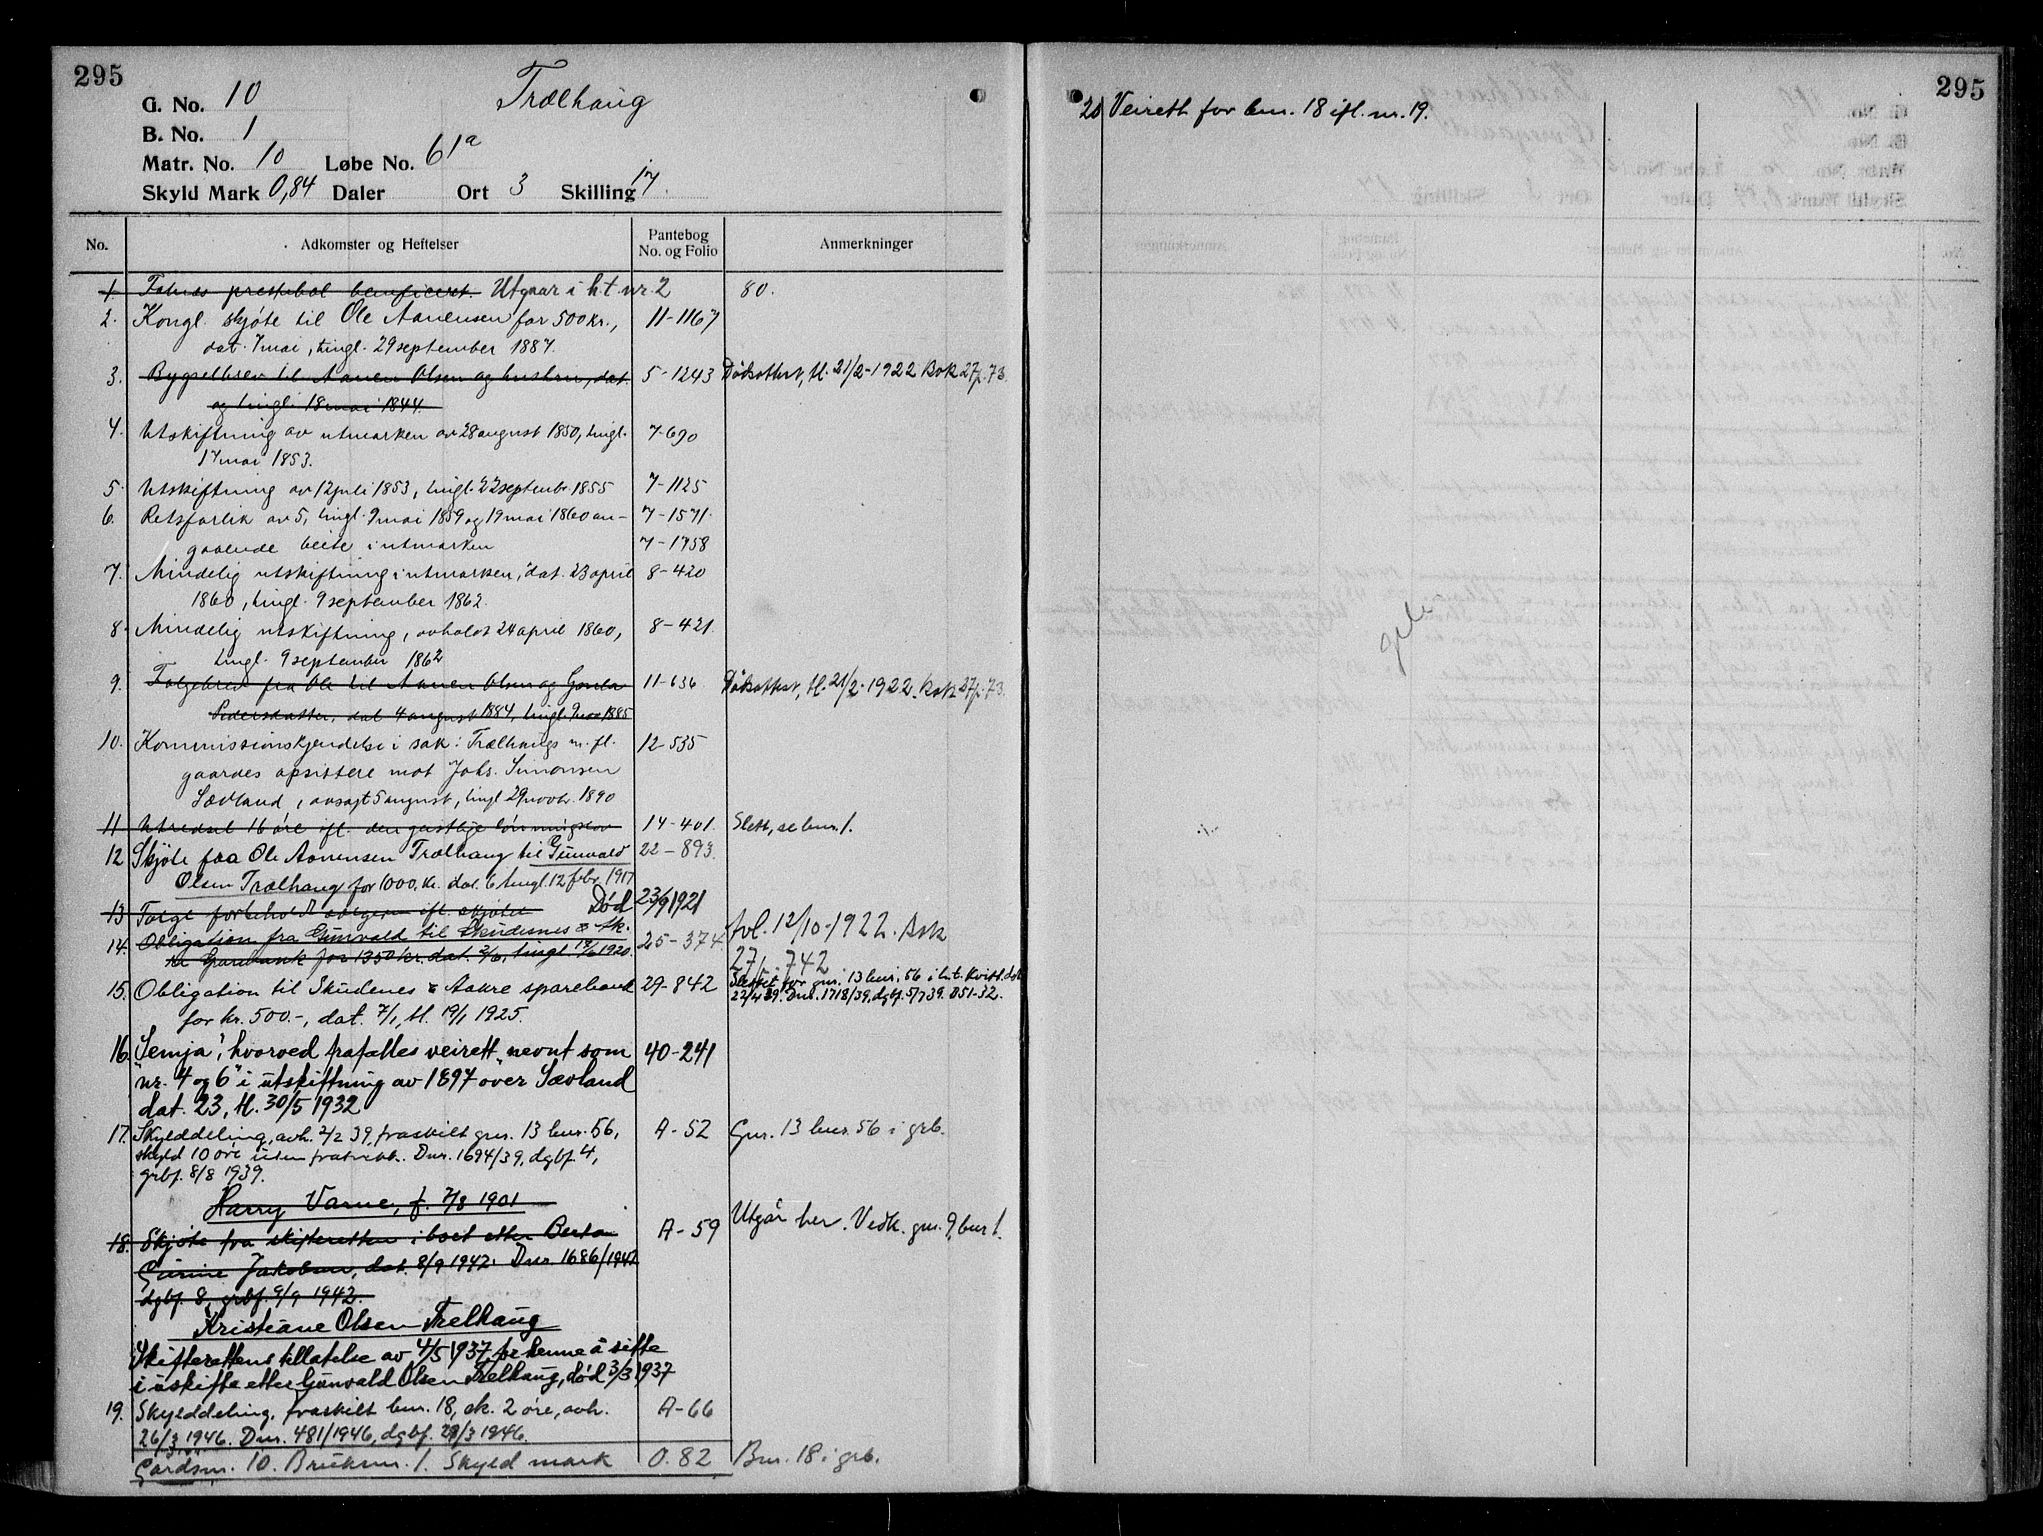 295
G. No. 10
Trælhaug
B. No. 1
Matr. No. 10 Løbe No. 61a
Skyld Mark 0,84 Daler Ort 3 Skilling 17
No. Adkomster og Heftelser Pantebog No. og Folio Anmerkninger
1 prestebol beneficeret. Utgaar i h.t. nr. 2 80.
2. Kongl. skjøte til Ole Aanensen for 500 kr., 11-1167
dat. 7 mai, tingl. 29 september 1887.
3. Bygselbrev til Aanen Olsen og hustru, dat. 5-1243 Dødsattest, tl. 21/2-1922 Bok 27 f. 73.
og tingl. 18 mai 1844.
4. Utskiftning av utmarken av 28 august 1850, tingl. 7-690
17 mai 1853.
5. Utskiftning av 12 juli 1853, tingl. 22 septembr. 1855 7-1125
6. Retsforlik av 5, tingl. 9 mai 1859 og 19 mai 1860 an- 7-1571.
gaaende beite i utmarken 7-1758
7. Mindelig utskiftning i utmarken, dat. 23 april 8-420
1860, tingl. 9 september 1862.
8. Mindelig utskiftning, avholdt 24 april 1860, 8-421.
tingl. 9 september 1862
9. Følgebrev fra Ole til Aanen Olsen og 11-636 Dødsattest, tl. 21/2-1922. Bok 27 f. 73.
Pedersdatter, dat. 4 august 1884, tingl. 9 1885
10. Kommissionskjendelse i sak: Trælhaugs m. fl. 12-535
gaardes opsittere mot Johs. Simonsen
Sævland, avsagt 5 august, tingl. 29 novbr. 1890
11 Utredsel 16 øre ifl. den geistlige lønningslov 14-401. Slett, se bnr. 1.
12 Skjøte fra Ole Aanensen Trælhaug til Gunvald 22-893.
Olsen Trælhaug for 1000, kr. dat. 6 tingl. 12 febr. 1917
13 Følge forbeholdt sælgeren ifl. skjøtet Død 23/9 1921
14. Obligation fra Gunvald til Skudesnes & Ak. 25-374 Avl. 12/10-1922. Bok
for 1350 kr. dat. 2/6, tingl. 1920. 27 742
15. Obligation til Skudenes & Aakre sparebank 29-842 Slettet for gnr. 13 bnr. 56 i h.t. kvitt. dat.
22/4 39. Dnr. 1718/39, dgbf. 5/7 39. B51-32.
for kr. 500.-, dat. 7/1, tl. 19/1 1925.
16. "Semja", hvorved frafalles veirett nevnt som 40-241
"nr. 4 og 6" i utskiftning av 1897 over Sævland
dat. 23, tl. 30/5 1932
17. Skylddeling, avh. 2/2 39, fraskilt gnr. 13 bnr. 56, A-52 Gnr. 13 bnr. 56 i grb.
skyld 10 øre uten fratrekk. Dnr. 1694/39, dgbf. 4,
grbf. 8/8 1939.
Harry Varne, f. 7/8 1901
18. Skjøte fra skifteretten i boet etter Berta A-59 Utgår her. Vedk. gnr. 9, bnr. 1.
Gurine Jakobsen, dat. 8/9 1942. Dnr. 1686/1942
dgbf. 8, grbf. 9/9 1942.
Kristiane Olsen Trelhaug
Skifterettens tillatelse av 4/5 1937 for henne å sitte
i uskifte etter Gunvald Olsen Trelhaug, død 3/3 1937
19. Skylddeling, fraskilt bnr. 18, sk. 2 øre, avh. A-66
26/3 1946. Dnr. 481/1946, dgbf. 29/3 1946.
Gardsnr. 10. Bruksnr. 1. Skyld mark 0.82 Bnr. 18 i grb.
295
20 Veirett for bnr. 18 ifl. nr. 19.